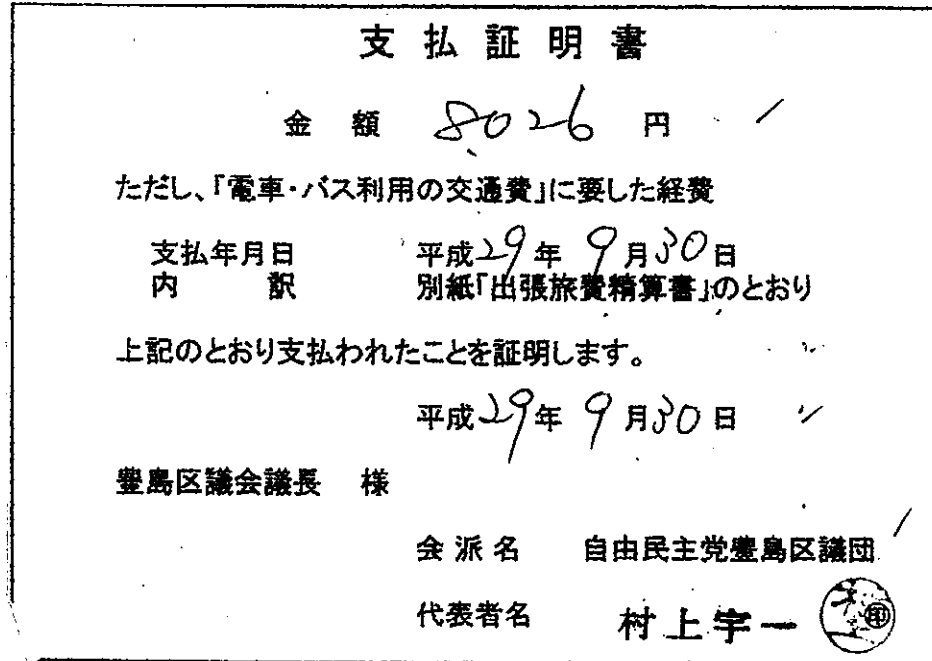 支払証明書
金額 8026 円
ただし、「電車・バス利用の交通費」に要した経費
支払年月日 平成29年9月30日
内訳 別紙「出張旅費精算書」のとおり
上記のとおり支払われたことを証明します。
平成29年9月30日
豊島区議会議長 様
会派名 自由民主党豊島区議団
代表者名 村上宇一 ㊞